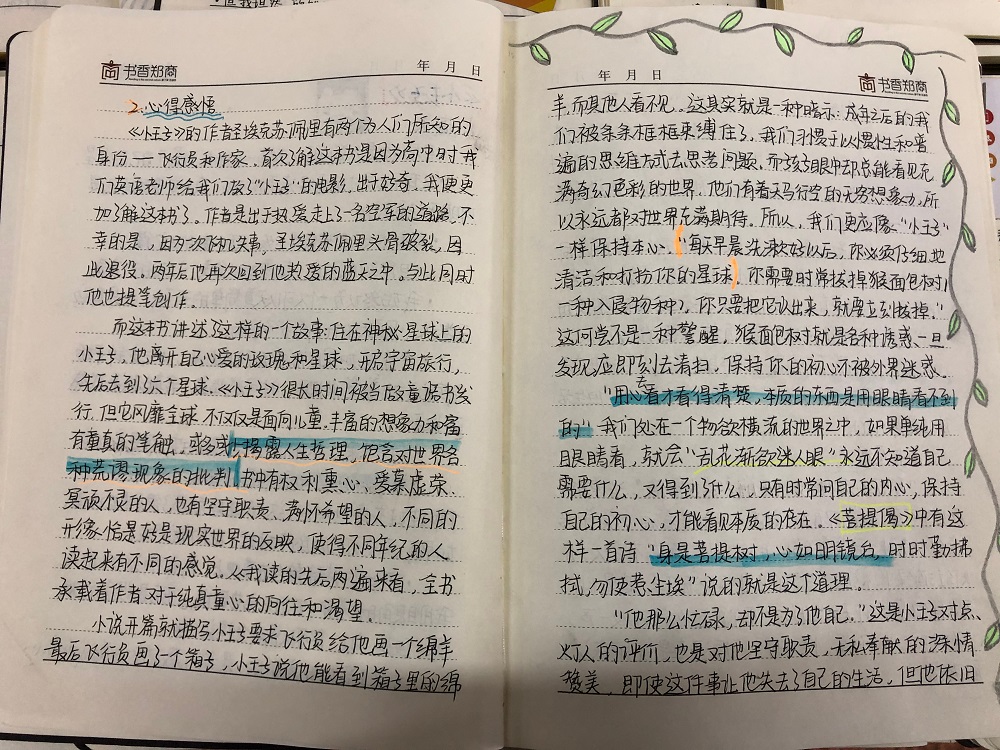 书香郑商
年 月 日
2.心得感悟
《小王子》的作者圣埃克苏佩里有两个为人们所知的
身份——飞行员和作家。首次了解这本书是因为高中时我
们英语老师给我们放了"小王子"的电影，出于好奇，我便更
加了解这本书了。作者是出于热爱走上了一名空军的道路，不
幸的是，因为一次飞机失事，圣埃克苏佩里头骨破裂，因
此退役。两年后他再次回到他热爱的蓝天之中。与此同时
他也提笔创作。
而这本书讲述了这样的一个故事：住在神秘星球上的
小王子，他离开自己心爱的玫瑰和星球，开启宇宙旅行，
先后去到了六个星球。《小王子》很长时间被当做童话书发
行，但它风靡全球，不仅仅是面向儿童。丰富的想象力和富
有童真的笔触，或多或少揭露人生哲理，饱含对世界各
种荒谬现象的批判。书中有权利熏心、爱慕虚荣、
冥顽不灵的人，也有坚守职责、满怀希望的人，不同的
形象恰是好是现实世界的反映，使得不同年纪的人
读起来有不同的感觉。从我读的先后两遍来看，全书
承载着作者对于纯真童心的向往和渴望。
小说开篇就描写小王子要求飞行员给他画一个绵羊
最后飞行员画了个箱子，小王子说他能看到箱子里的绵
年 月 日
书香郑商
羊，而其他人看不见。这其实就是一种暗示，成年之后的我
们被条条框框束缚住了，我们习惯于以惯性和普
遍的思维方式去思考问题。而孩子眼中却总能看见充
满奇幻色彩的世界。他们有着天马行空的无穷想象力，所
以永远都对世界充满期待。所以，我们更应像"小王子"
一样保持本心。"每天早晨洗漱好以后，你必须仔细地
清洁和打扮你的星球，你需要时常拔掉猴面包树（
一种入侵物种），你只要把它认出来，就要立刻拔掉。"
这何尝不是一种警醒，猴面包树就是各种诱惑，一旦
发现，应即刻去清扫，保持你的初心不被外界迷惑。
"用心去看才看得清楚，本质的东西是用眼睛看不到
的"我们处在一个物欲横流的世界之中，如果单纯用
眼睛看，就会"乱花渐欲迷人眼"永远不知道自己
需要什么，又得到了什么，只有时常问自己的内心，保持
自己的初心，才能看见本质的存在。《菩提偈》中有这
样一首诗"身是菩提树，心如明镜台，时时勤拂
拭，勿使惹尘埃"说的就是这个道理。
"他那么忙碌，却不是为了他自己。"这是小王子对点
灯人的评价，也是对他坚守职责，无私奉献的深情
赞美，即使这件事让他失去了自己的生活，但他依旧